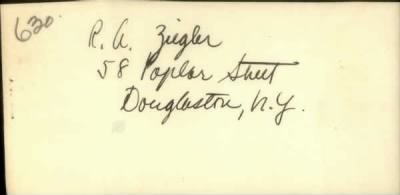 630
R. A. Ziegler
58 Poplar Street
Douglaston, N.Y.